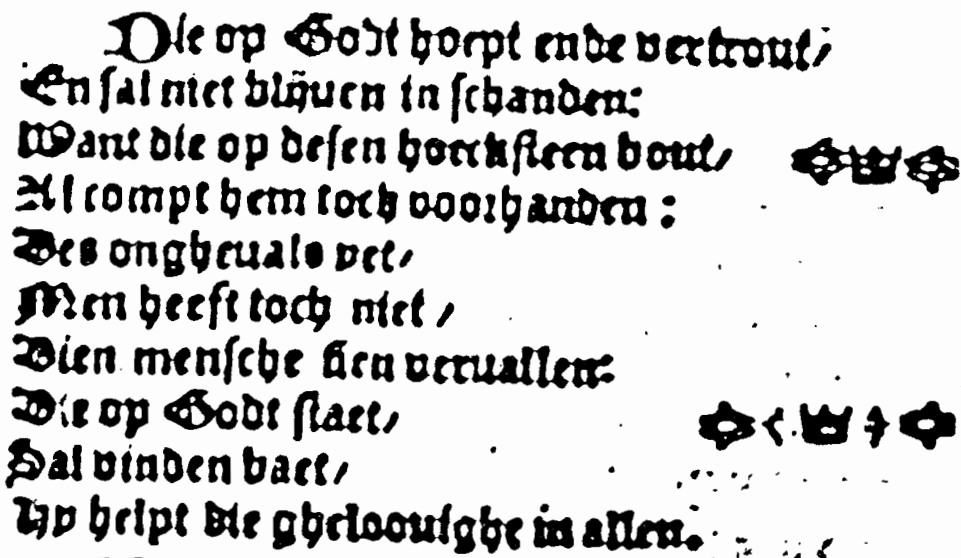 Die op Godt hoept ende vertrout/
En sal niet blijven in schanden:
Want die op desen hoecksteen bout/
Al compt hem toch voorhanden:
Des ongheuals vet/
Men heeft toch niet/
Dien mensche sien veruallen:
Die op Godt staet/
Sal vinden baet/
Hy helpt die ghelooighe in allen.